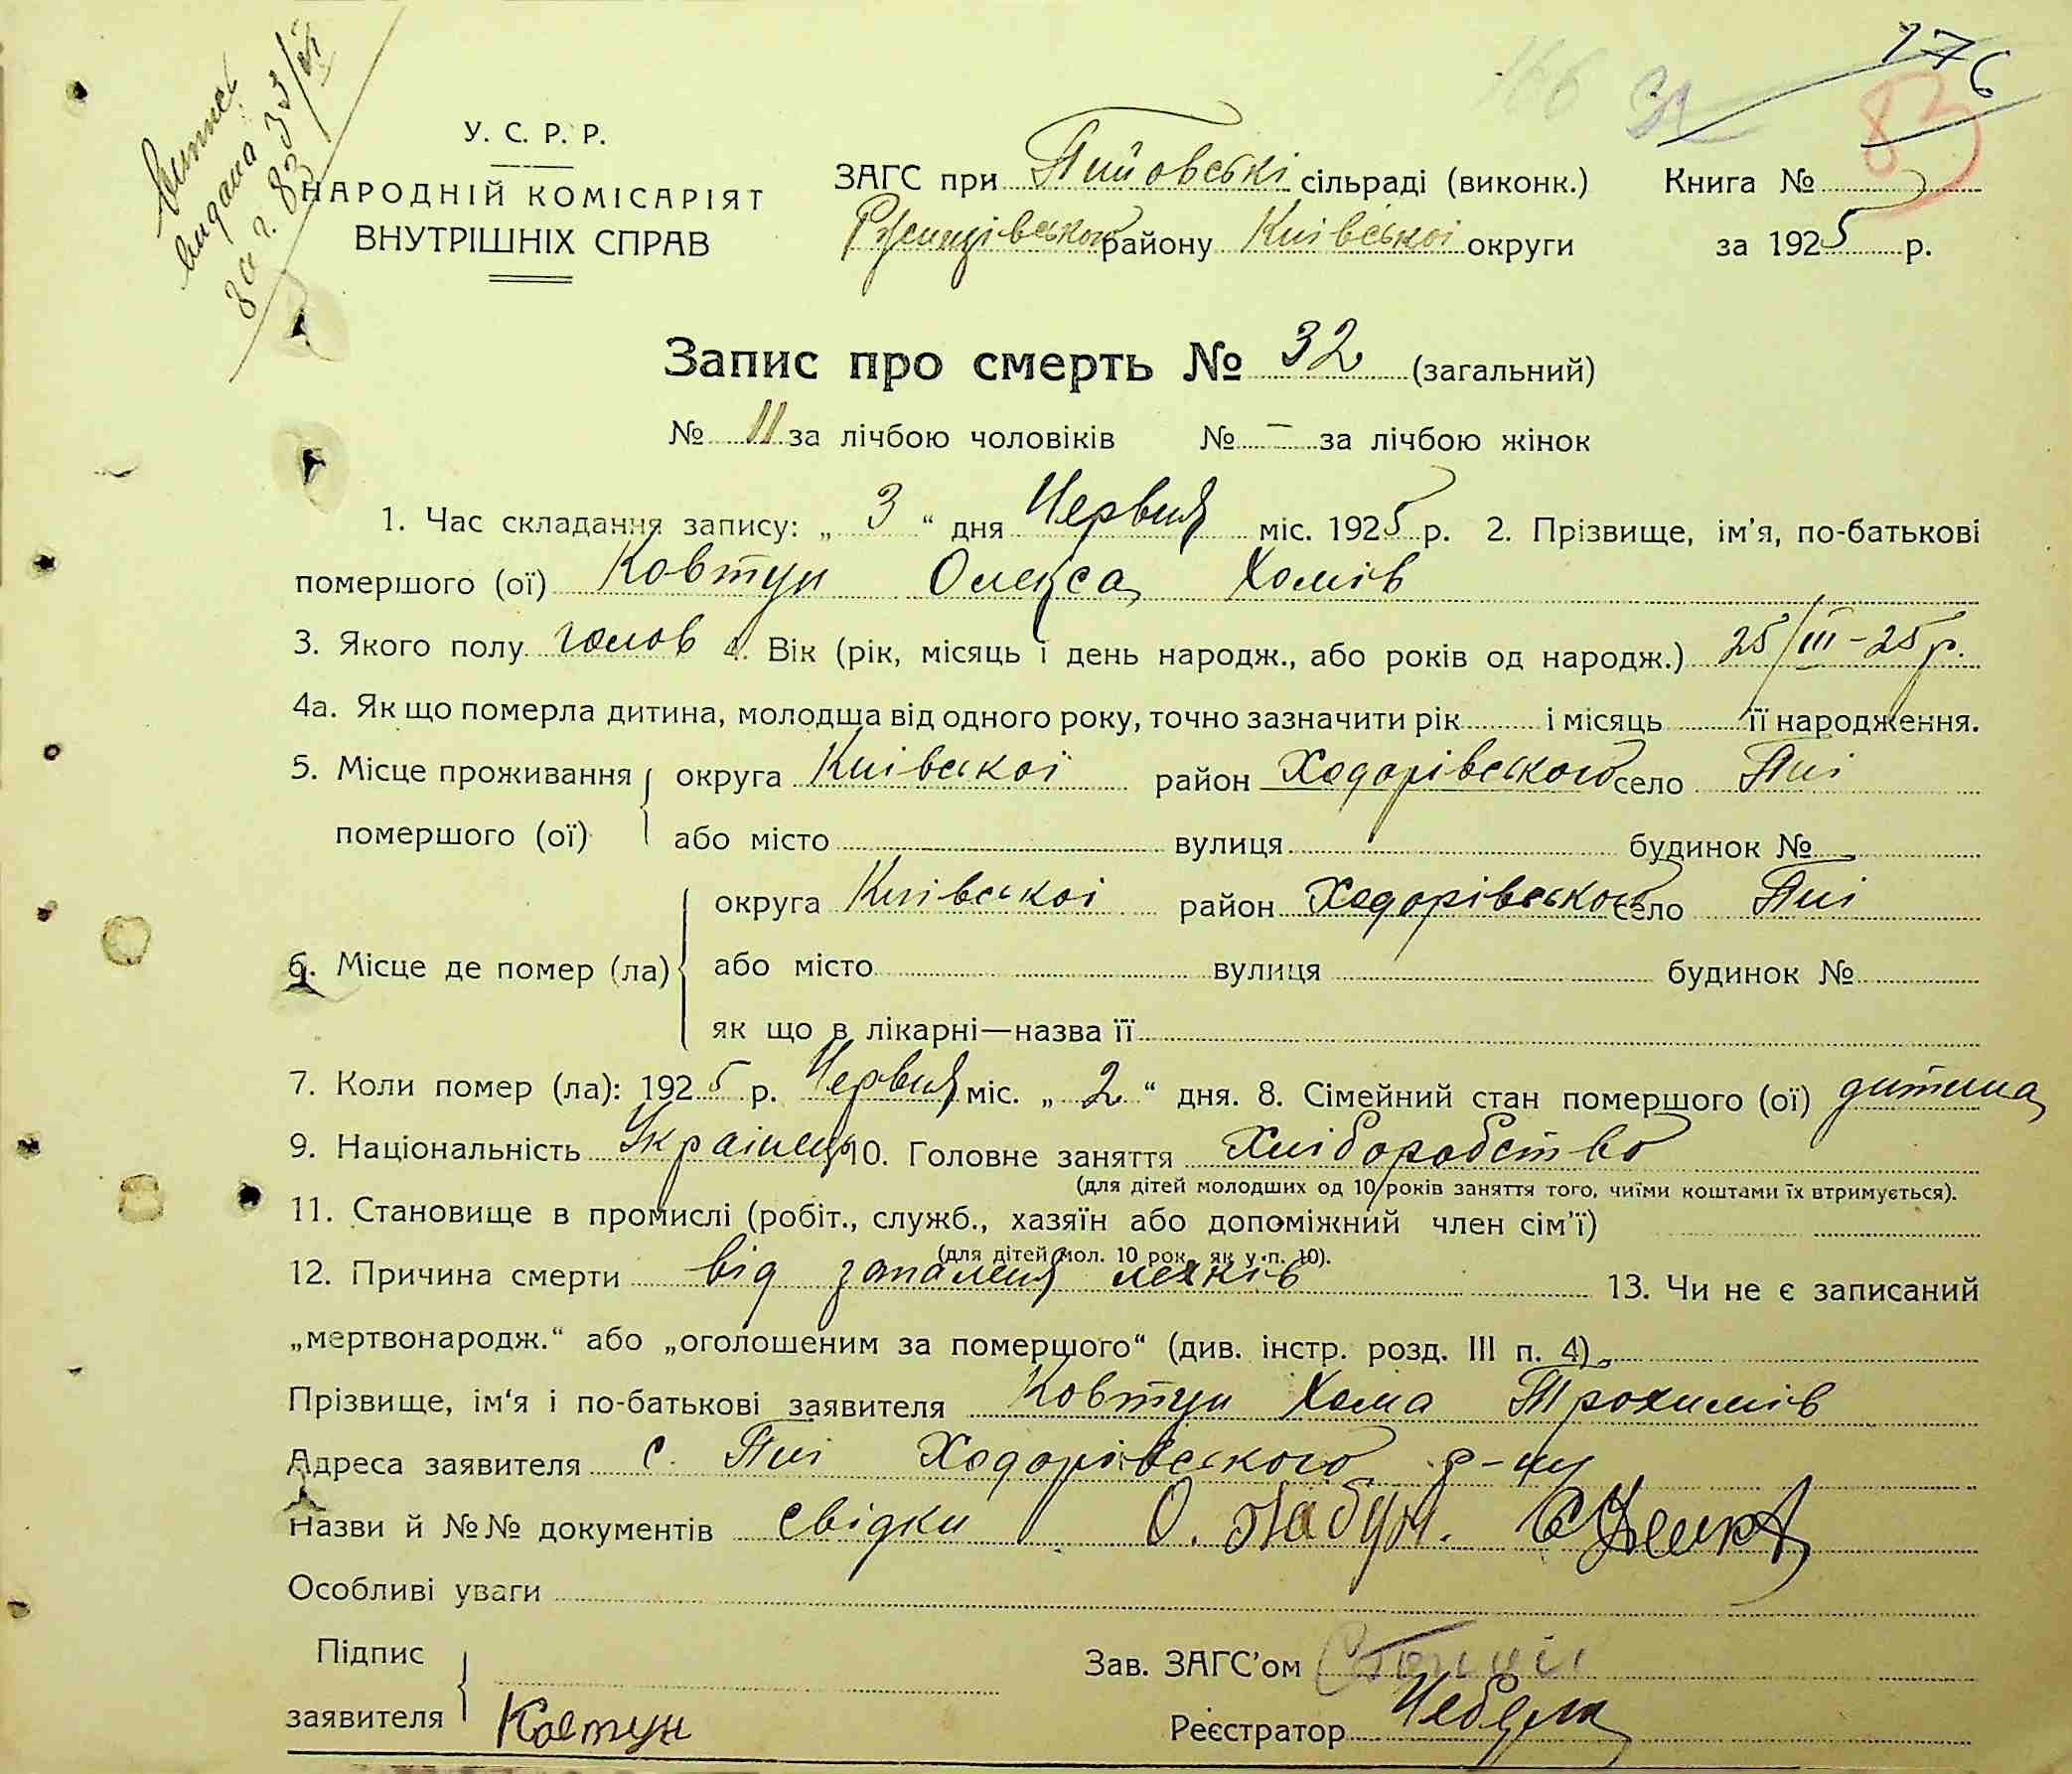 176
83
Выпись
выдана
за г. 83
У. С. Р. Р.
НАРОДНІЙ КОМІСАРІЯТ
ВНУТРІШНІХ СПРАВ
ЗАГС при Пийовські сільраді (виконк.) Книга №
Ржищівського району Київської округи за 1925 р.
Запис про смерть № 32 (загальний)
№ 11 за лічбою чоловіків № – за лічбою жінок
1. Час складання запису: „ 3 “ дня Червня міс. 1925 р. 2. Прізвище, ім'я, по-батькові
помершого (ої) Ковтун Олекса Хомів
3. Якого полу чолов 4. Вік (рік, місяць і день народж., або років од народж.) 25/III–25 р.
4а. Як що померла дитина, молодша від одного року, точно зазначити рік і місяць її народження.
5. Місце проживання помершого (ої) округа Київскої район Ходорівського село Пиі
або місто вулиця будинок №
6. Місце де помер (ла) округа Київської район Ходорівського село Пиі
або місто вулиця будинок №
як що в лікарні—назва її
7. Коли помер (ла): 1925 р. Червня міс. „ 2 “ дня. 8. Сімейний стан помершого (ої) дитина
9. Національність Украінець 10. Головне заняття Хліборобство
(для дітей молодших од 10 років заняття того, чиїми коштами їх втримується).
11. Становище в промислі (робіт., служб., хазяїн або допоміжний член сім'ї)
(для дітей мол. 10 рок. як у п. 10).
12. Причина смерти від запаленя легків 13. Чи не є записаний
„мертвонародж.“ або „оголошеним за помершого“ (див. інстр. розд. III п. 4)
Прізвище, ім'я і по-батькові заявителя Ковтун Хома Трохимів
Адреса заявителя с. Пиі Ходорівського р-ну
Назви й №№ документів свідки О.
Особливі уваги
Підпис заявителя Ковтун
Зав. ЗАГС'ом
Реєстратор